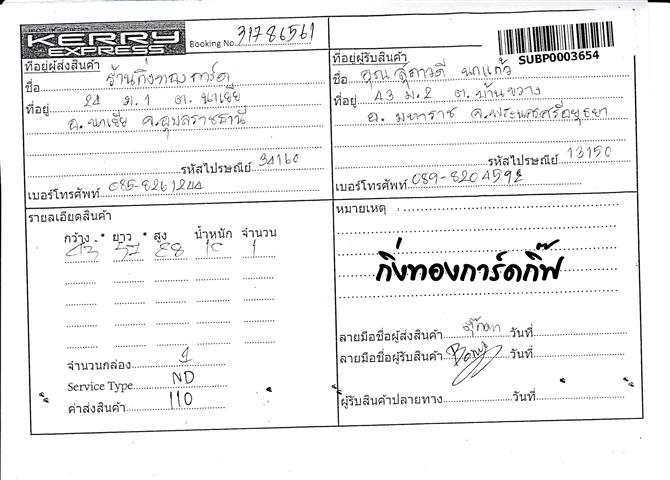 KERRY
EXPRESS
Booking No. 31786561
SUBP0003654
ที่อยู่ผู้ส่งสินค้า
ชื่อ ร้านกิ่งทองการ์ด
ที่อยู่ 24 ม.1 ต. นาเยีย
อ. นาเยีย จ.อุบลราชธานี
รหัสไปรษณีย์ 34160
เบอร์โทรศัพท์ 085-8261244
ที่อยู่ผู้รับสินค้า
ชื่อ คุณ สุดาวดี นกแก้ว
ที่อยู่ 43 ม.2 ต. บ้านขวาง
อ. มหาราช จ.พระนครศรีอยุธยา
รหัสไปรษณีย์ 13150
เบอร์โทรศัพท์ 089-8204592
รายละเอียดสินค้า
กว้าง * ยาว * สูง น้ำหนัก จำนวน
43 57 1
จำนวนกล่อง 1
Service Type ND
ค่าส่งสินค้า 110
หมายเหตุ :
กิ่งทองการ์ดกิ๊ฟ
ลายมือชื่อผู้ส่งสินค้า วันที่
ลายมือชื่อผู้รับสินค้า วันที่
ผู้รับสินค้าปลายทาง วันที่